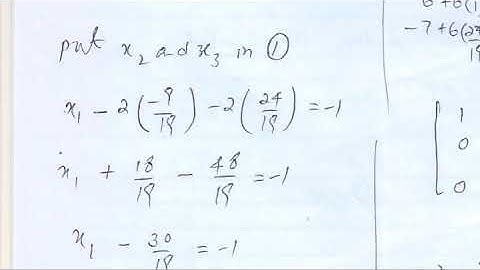 put x₂ and x₃ in ①
x₁ - 2(-9/19) - 2(24/19) = -1
x₁ + 18/19 - 48/19 = -1
x₁ - 30/19 = -1
-7+6(24
1
0
0